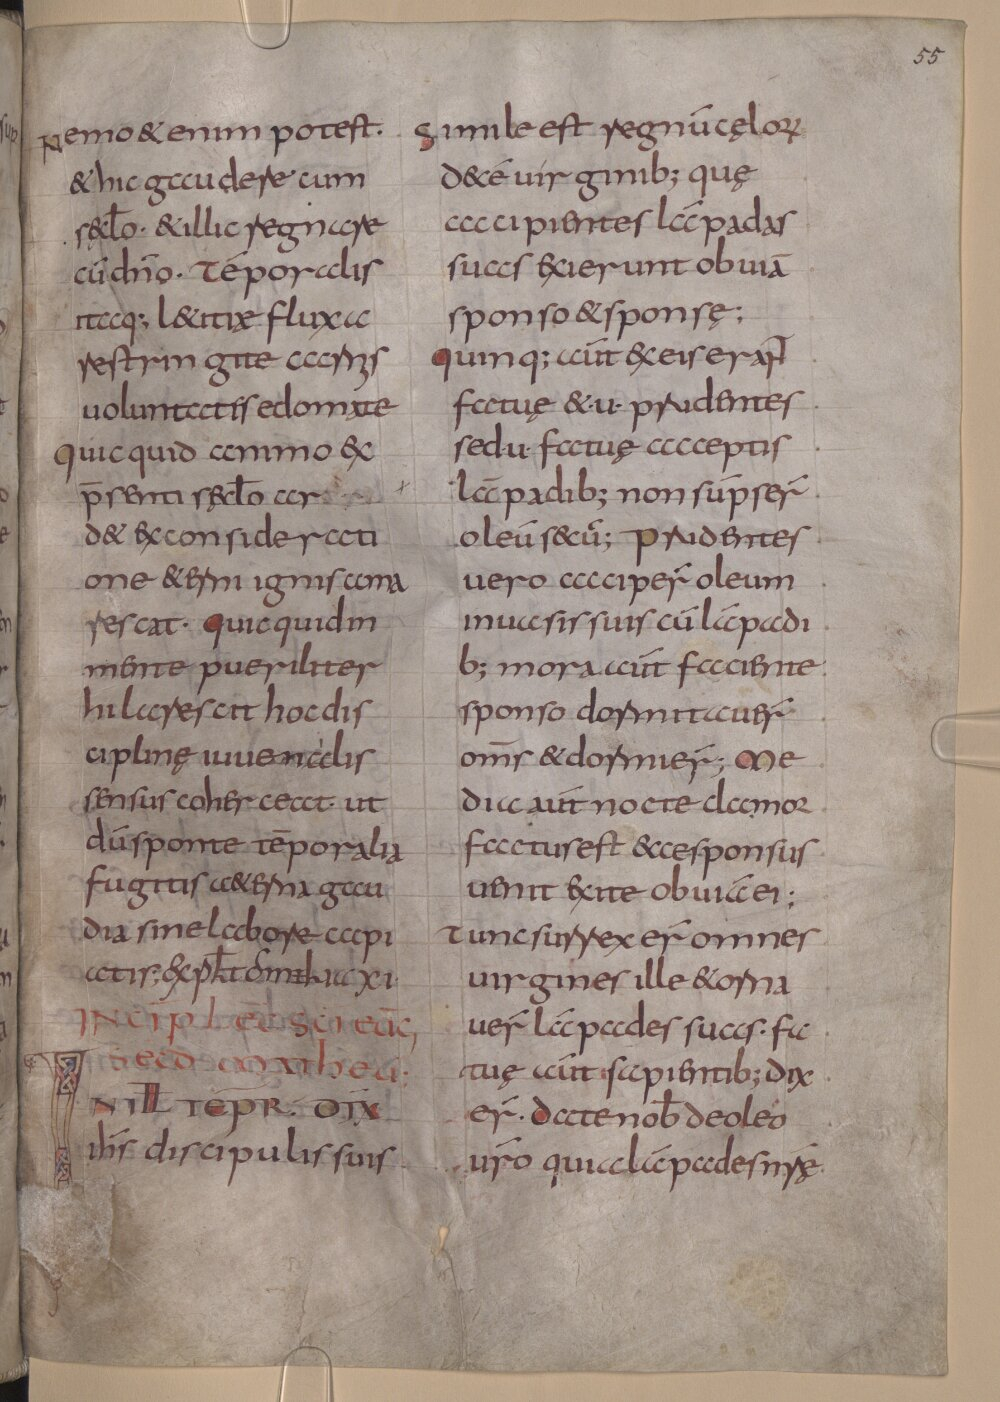 55
Nemo & enim potest·
& hic gaudere cum
sęcl̄o· & illic regnare
cū dn̄o· Tēporalis
itaq; l&itiæ fluxa
restringite carnis
voluntatis edomate
Quicquid animo ex
p̄senti sęcl̄o ar
d& ex considerati
one &erni ignis ama
rescat· Quicquid in
mente pueriliter
hilarescit hoc dis
ciplinę iuuenalis
sensus coherceat· ut
dū sponte tēporalia
fugitis a&erna gau
dia sine labore capi
atis; Expl̄t omelia xi·
INCIP̄ LEC̄ SC̄I EUAḠ
SECD̄ MATHEU·
IN ILL TEPR· DIX
ih̄s discipulis suis
Simile est regnū cęloꝝ
decē uirginib; quę
accipientes lāpadas
suas exierunt obuiā
sponso & sponsę;
Quinq; aūt ex eis erant
fatuę &·u· prudentes
sed u· fatuę acceptis
lāpadib; non sūpser̄
oleū secū; Prudentes
uero acciper̄ oleum
in uasis suis cū lāpadi
b; mora aūt faciente
sponso dormitauer̄
om̄s & dormier̄; Me
dia aūt nocte clamor
factus est ecce sponsus
uenit exite obuiā ei;
Tunc surrexer̄ omnes
virgines ille & orna
uer̄ lāpades suas· fa
tuę aūt sapientib; dix
er̄· Date nob̄ de oleo
ur̄o quia lāpades nr̄ę